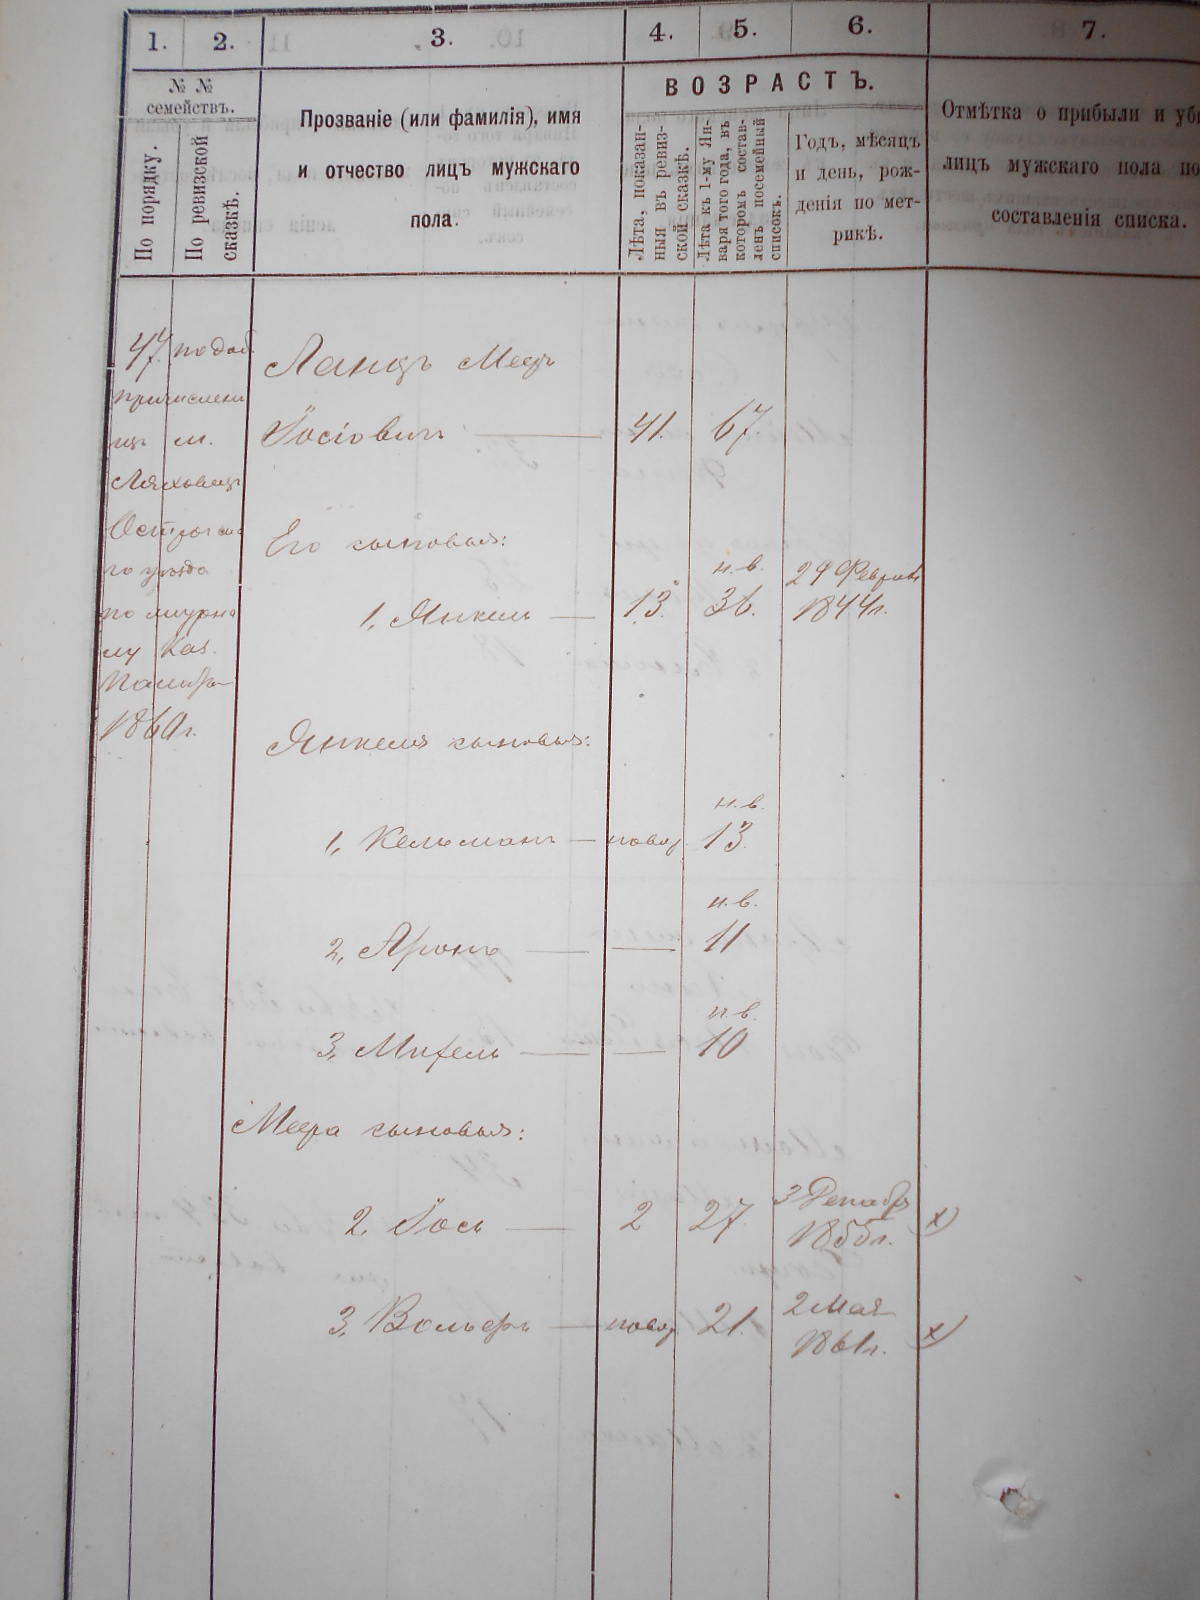 1. 2. 3. 4. 5. 6. 7.
№ № семействъ.
По порядку.
По ревизской сказкѣ.
Прозваніе (или фамилія), имя
и отчество лицъ мужскаго
пола.
ВОЗРАСТЪ.
Лѣта, показан-
ныя въ ревиз-
ской сказкѣ.
Лѣта къ 1-му Ян-
варя того года, въ
которомъ состав-
ленъ посемейный
списокъ.
Годъ, мѣсяцъ
и день, рож-
денія по мет-
рикѣ.
Отмѣтка о прибыли и уб
лицъ мужскаго пола по
составленія списка.
47. по доб.
причислени
цъ м.
Ляховецъ
Острогска
го уѣзда
по журна
лу Каз.
Палаты
186 г.
Ланцъ Мееръ
Іосіовичъ 41. 67.
Его сыновья:
1, Янкель 13. н.в. 36. 29 Февраля 1844 г.
Янкеля сыновья:
1, Кельманъ новор. н.в. 13.
2, Аронъ н.в. 11
3, Михель н.в. 10
Меера сыновья:
2, Іось 2 27. 3 Декабр 1855 г. х)
3, Вольфъ новор 21. 2 Мая 1861 г. х)